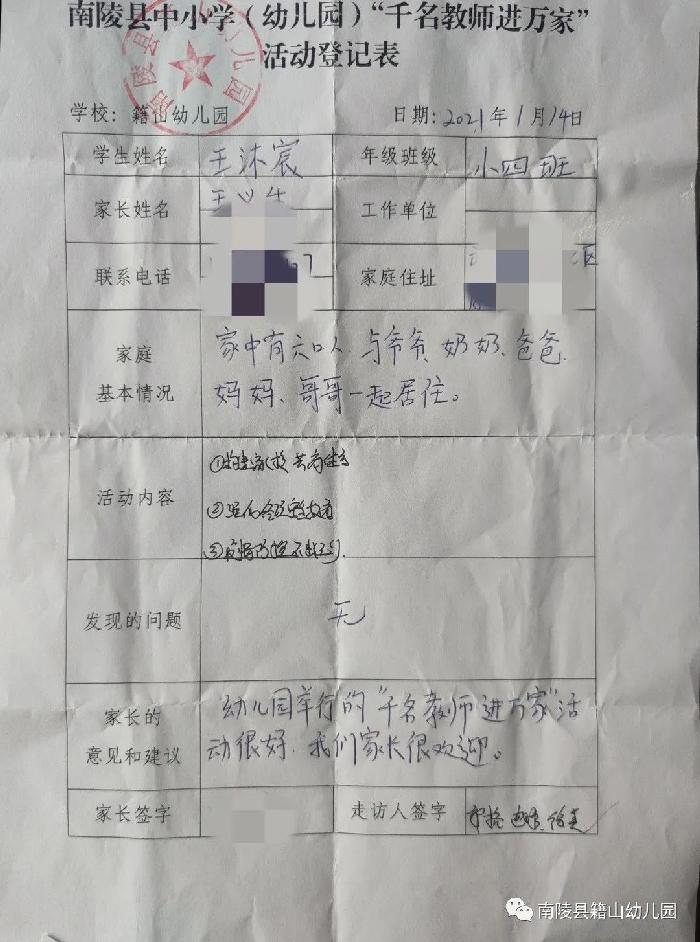 南陵县中小学（幼儿园）“千名教师进万家”
活动登记表
学校：籍山幼儿园 日期：2021年1月14日
学生姓名 王沐宸 年级班级 小四班
家长姓名 工作单位
联系电话 家庭住址
家庭
基本情况
家中有六口人，与爷爷、奶奶、爸爸、
妈妈、哥哥一起居住。
活动内容
①
②
③疫情防控
发现的问题 无
家长的
意见和建议
幼儿园举行的“千名教师进万家”活
动很好，我们家长很欢迎。
家长签字 走访人签字
南陵县籍山幼儿园